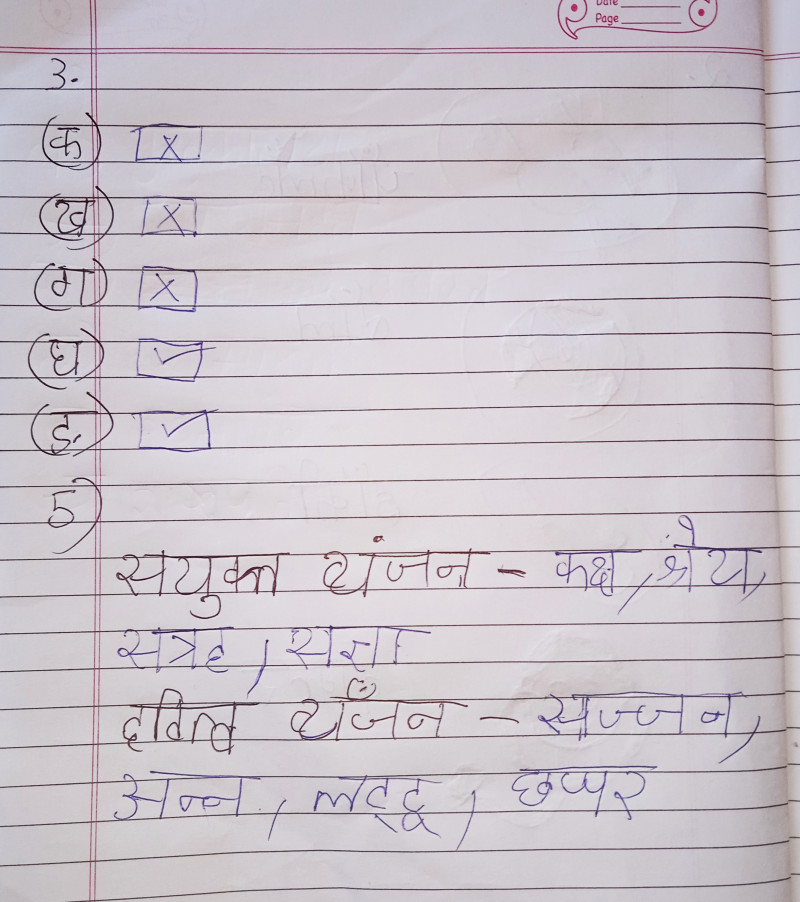 Date
Page
3.
(क) ☒
(ख) ☒
(ग) ☒
(घ) ☑
(ङ) ☑
5)
सयुक्त व्यंजन - कक्ष, श्रेय,
सत्रह, सज्ञा
द्वित्व व्यँजन - सज्जन,
अन्न, लट्टू, छप्पर